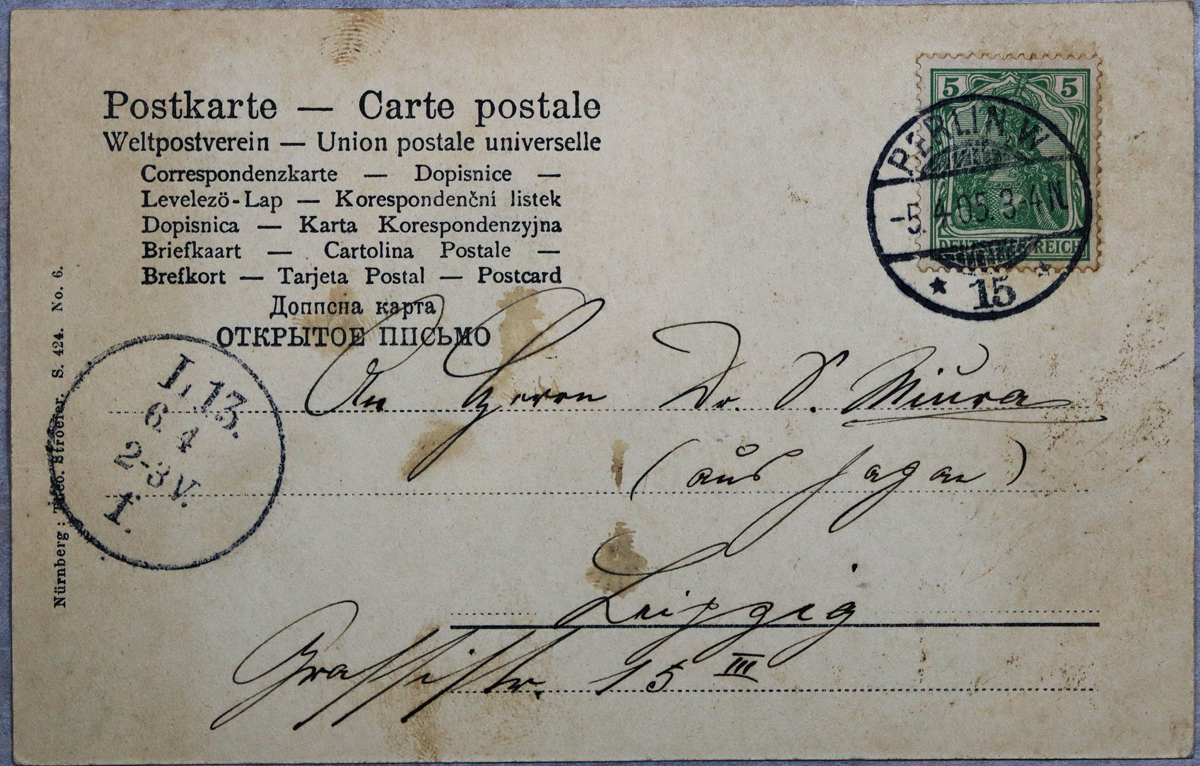 Postkarte — Carte postale
Weltpostverein — Union postale universelle
Correspondenzkarte — Dopisnice —
Levelezö-Lap — Korespondenční listek
Dopisnica — Karta Korespondenzyjna
Briefkaart — Cartolina Postale —
Brefkort — Tarjeta Postal — Postcard
Доппсна карта
ОТКРЫТОЕ ППСЬМО
5 5
DEUTSCHES REICH
BERLIN W.
5. 4.05. 3-4N
* 15 *
L. 13.
6 4
2-3 V.
I.
Nürnberg: Theo. Stroefer. S. 424. No. 6.
An Herrn Dr. S. Miura
(aus Japan)
Leipzig
Grassistr. 15 III